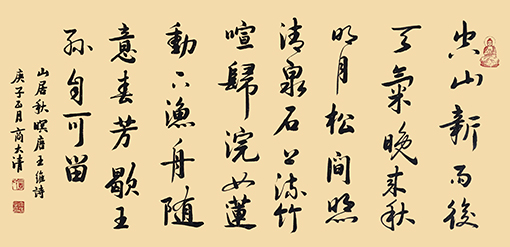 空山新雨後
天氣晚来秋
明月松間照
清泉石上流竹
喧歸浣女蓮
動下漁舟隨
意春芳歇王
孫自可留
山居秋暝唐王維詩
庚子五月商大清